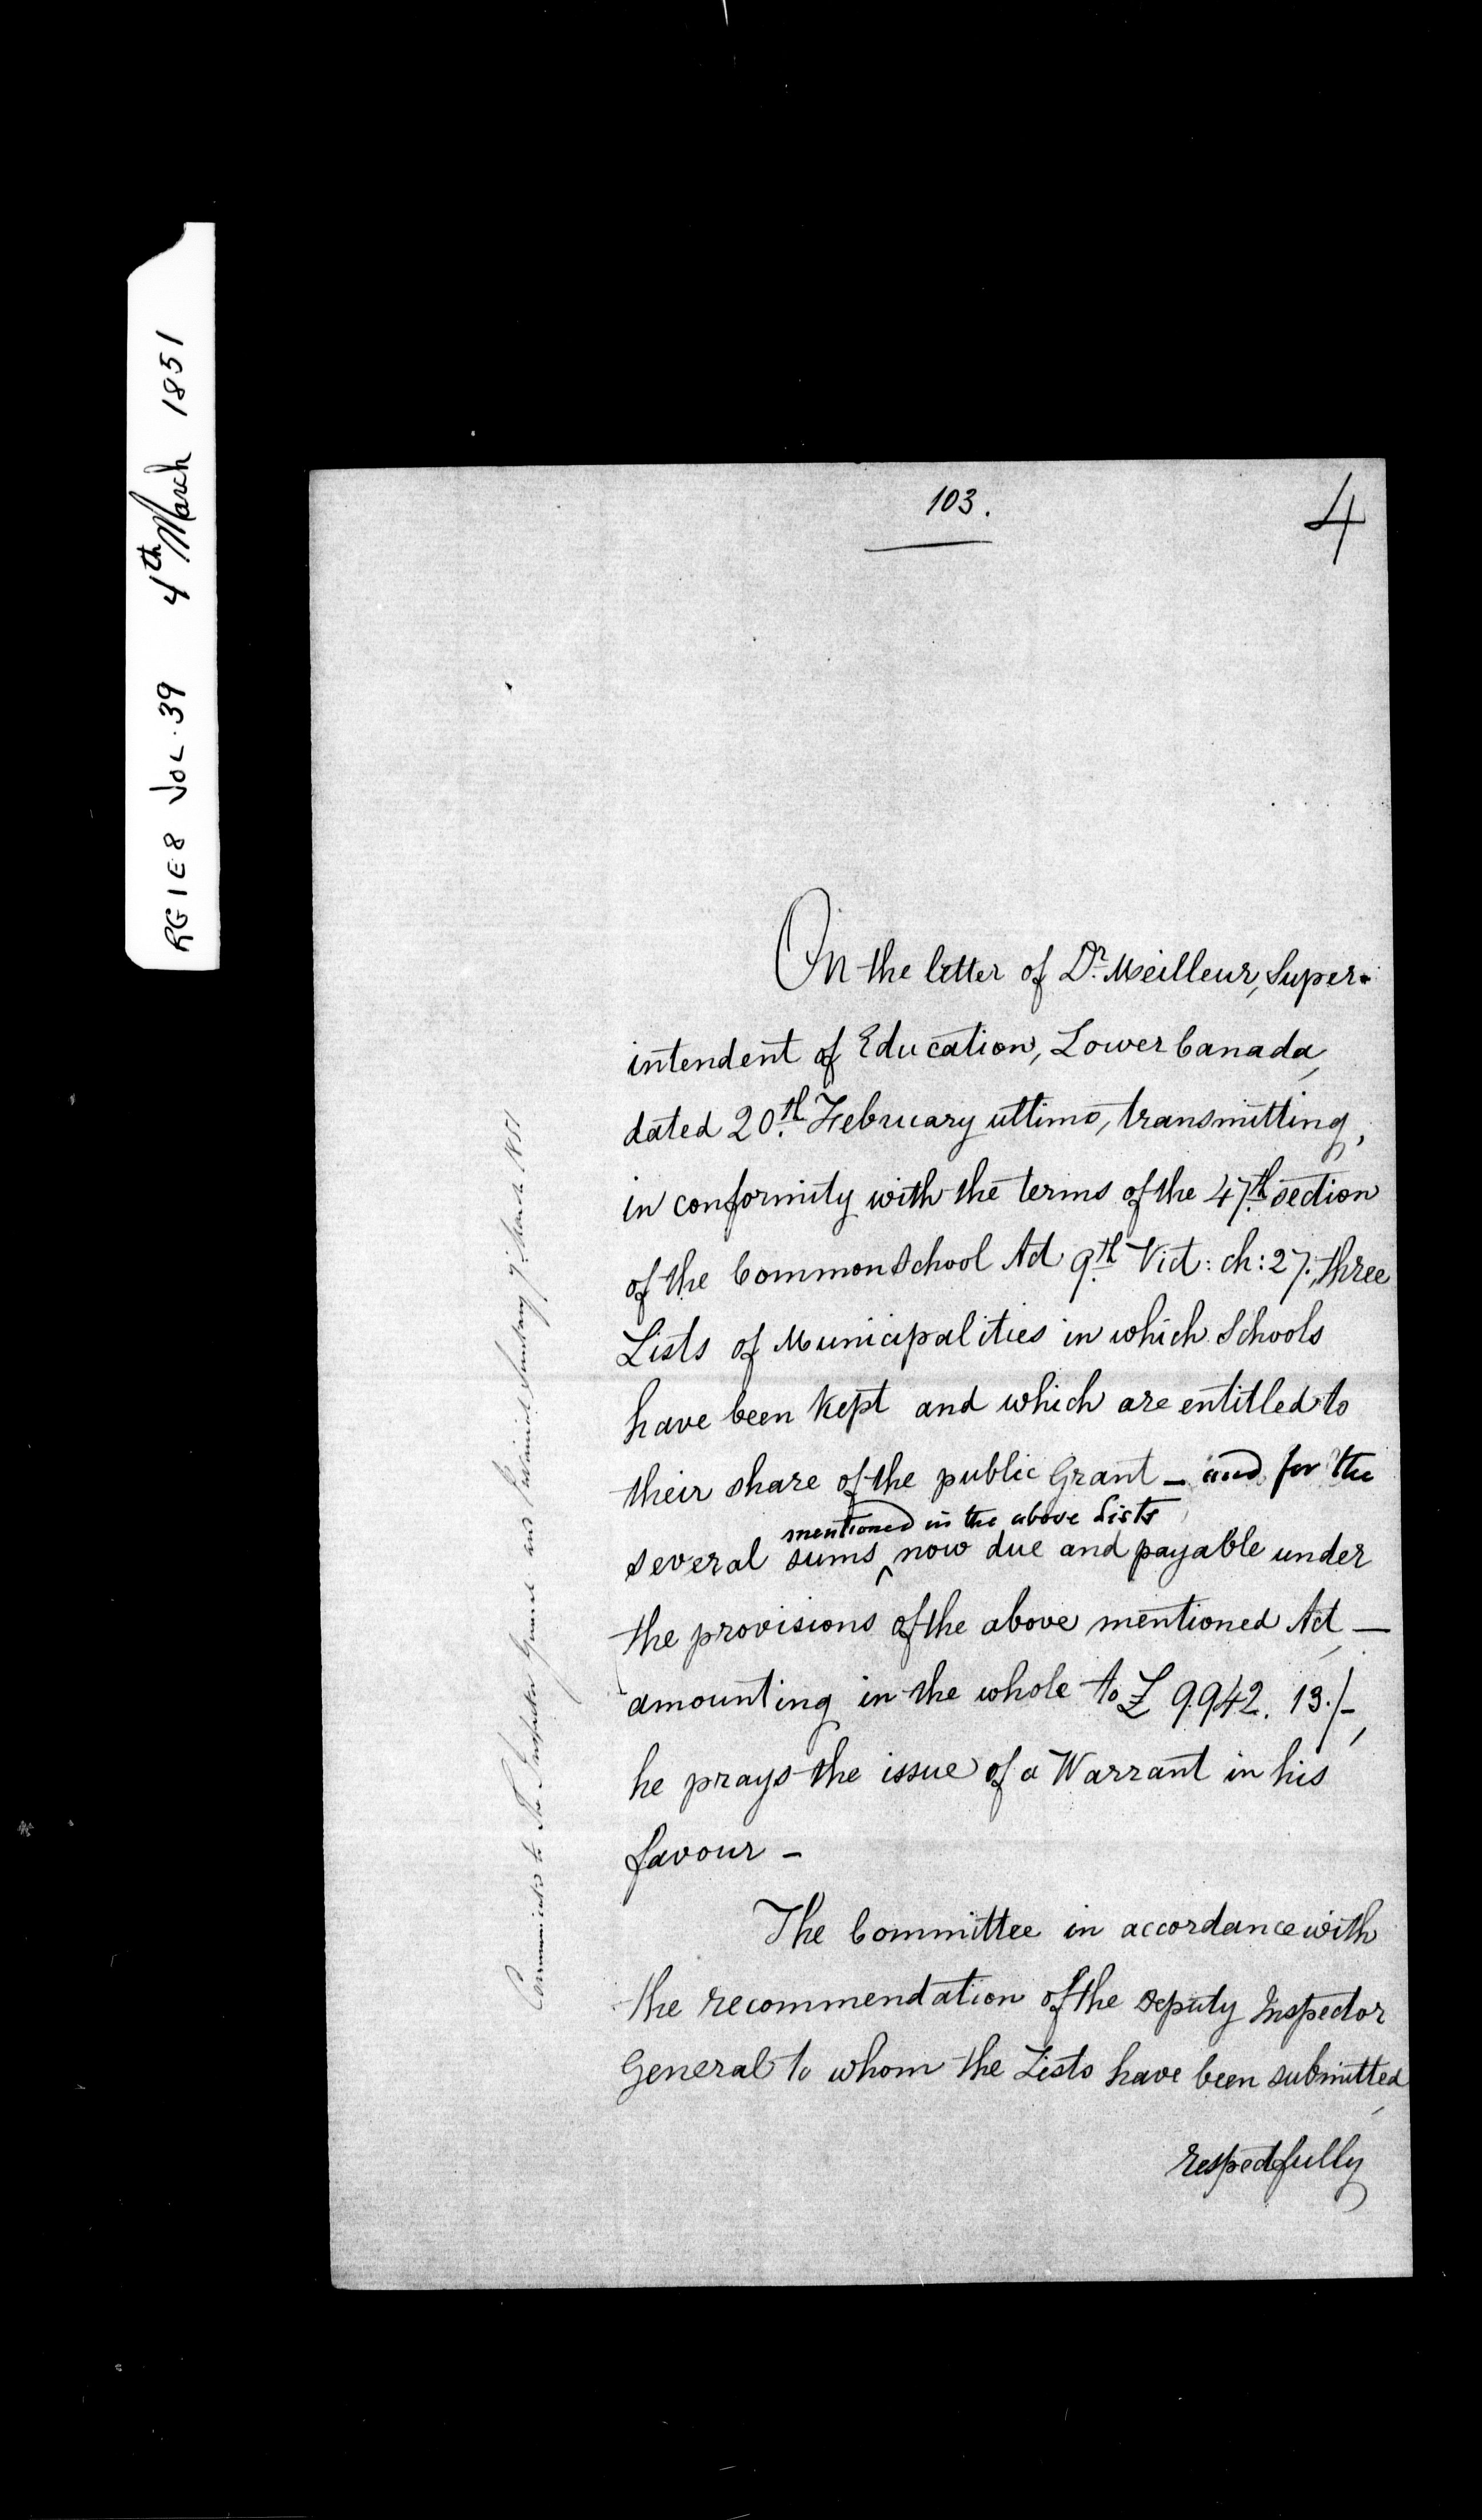 RG1E8 VOL. 39 4th March 1851
103.
4
On the letter of Dr. Meilleur, Super-
intendent of Education, Lower Canada,
dated 20th February ultimo, transmitting,
in conformity with the terms of the 47th section
of the Common School Act 9th Vict: ch: 27, three
Lists of Municipalities in which Schools
have been kept and which are entitled to
their share of the public Grant — and for the
mentioned in the above Lists
several sums ^ now due and payable under
the provisions of the above mentioned Act, —
amounting in the whole to £ 9.942. 13./-,
he prays the issue of a Warrant in his
favour —
The Committee in accordance with
the recommendation of the Deputy Inspector
General to whom the Lists have been submitted,
respectfully
Communicated to The Inspector General and Provincial Secretary 7: March 1851